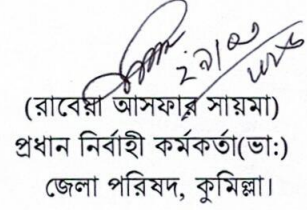 (রাবেয়া আসফার সায়মা)
প্রধান নির্বাহী কর্মকর্তা(ভা:)
জেলা পরিষদ, কুমিল্লা।